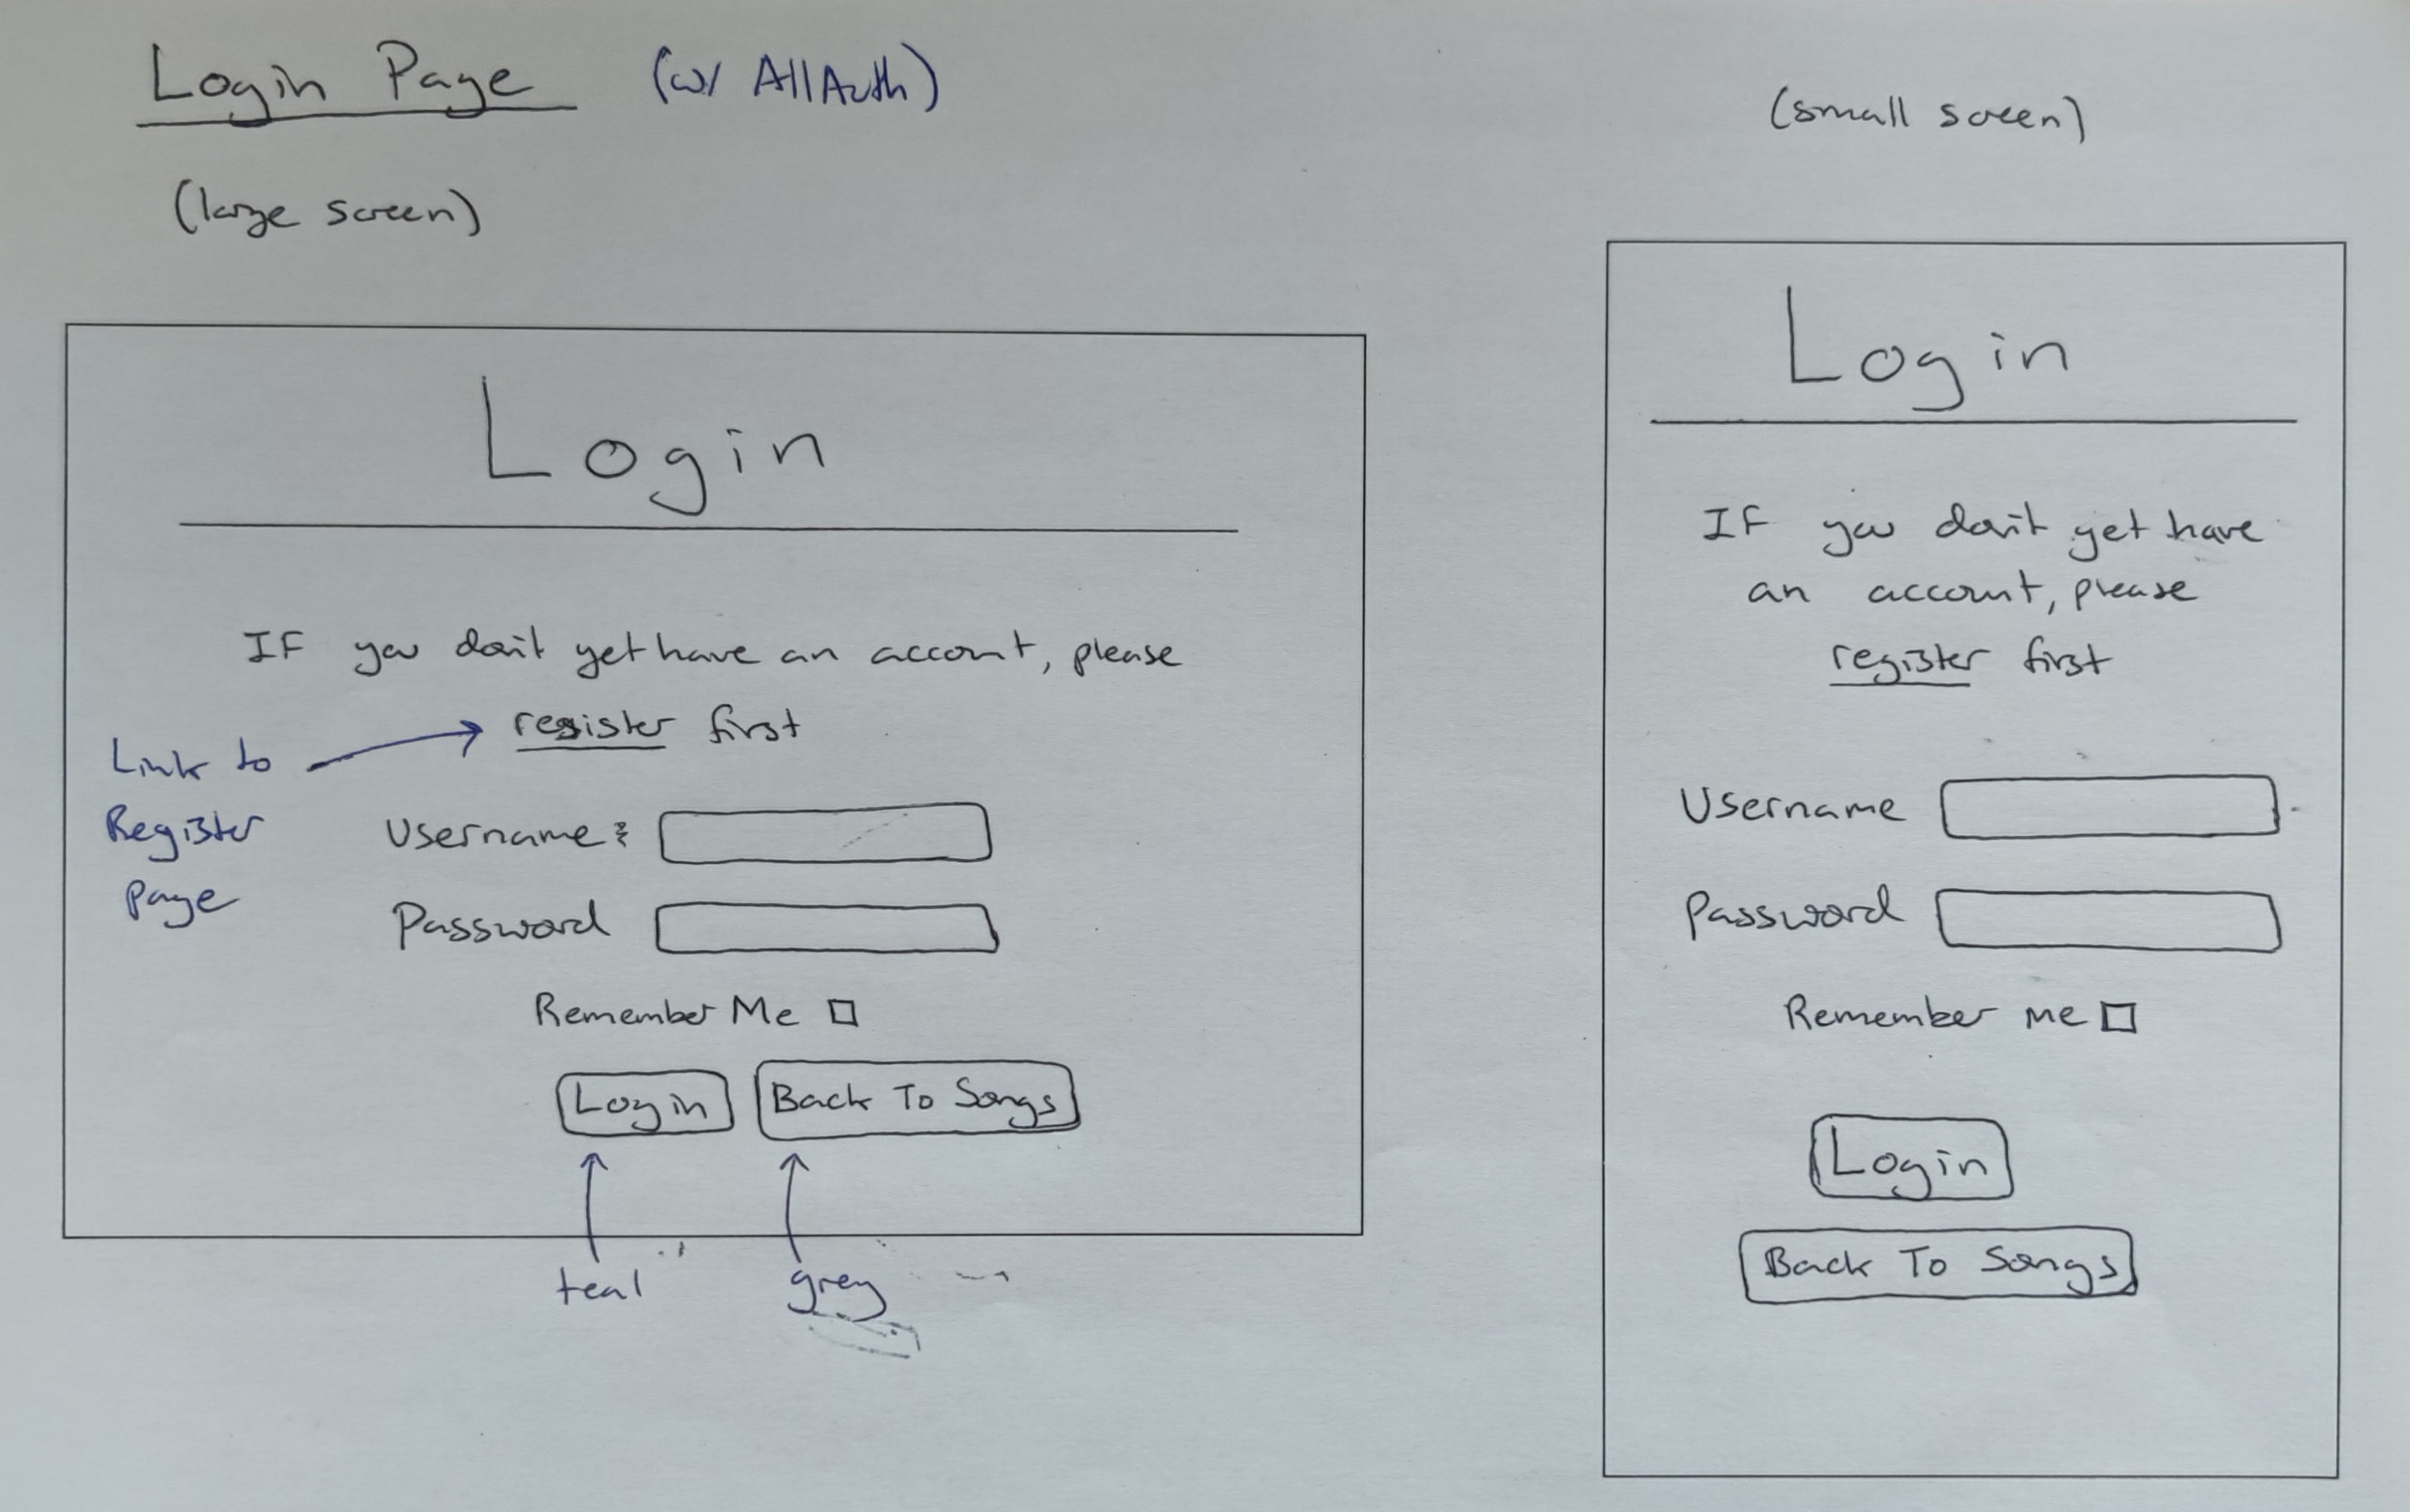 Login Page (w/ AllAuth)
(large screen)
Login
If you don't yet have an account, please
register first
Link to
Register
page
Username:
Password
Remember Me
Login Back To Songs
teal grey
(small screen)
Login
If you don't yet have
an account, please
register first
Username
Password
Remember me
Login
Back To Songs